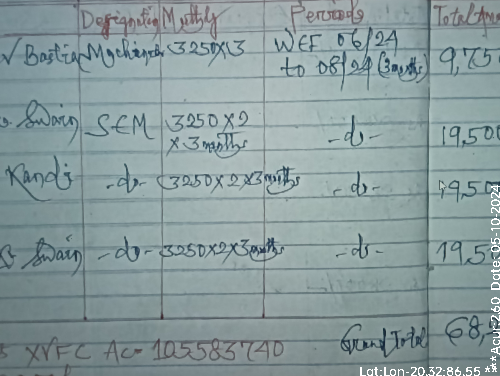 Designation Monthly Periods Total
√ Bastia Mechanic 3250×3 WEF 06/24 9,75
to 08/24 (3 months)
Swain SEM 3250×2 -do- 19,500
×3 months
Kandi -do- 3250×2×3 months -do- 19,50
Swain -do- 3250×2×3 months -do- 19,50
Grand Total 68,
AC= 105583740
Lat:Lon-20.32:86.55 *** Acu:=2.60 Date: 05-10-2024